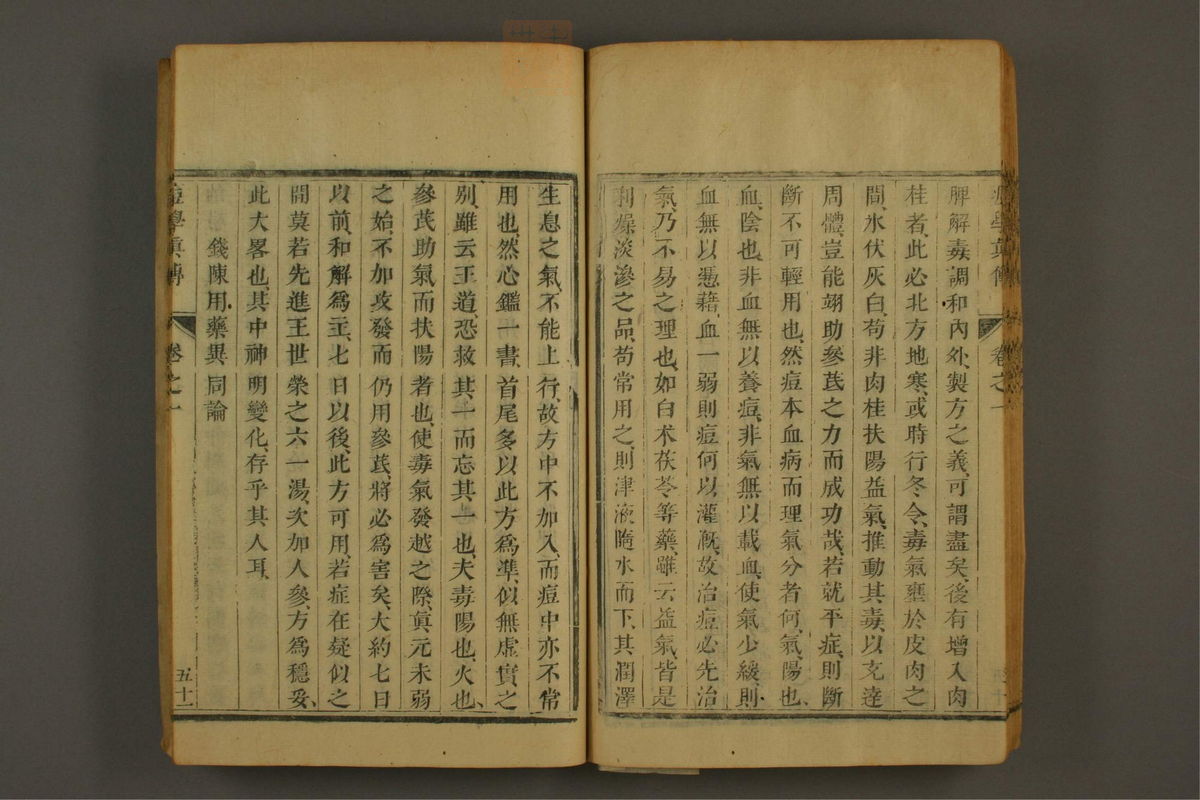 痘學真傳
卷之一
脾解毒調和內外、製方之義、可謂盡矣、後有增入肉
桂者、此必北方地寒、或時行冬令、毒氣壅於皮肉之
間、氷伏灰白、苟非肉桂扶陽益氣、推動其毒以充達
周體、豈能翊助參茋之力而成功哉、若就平症、則斷
斷不可輕用也、然痘本血病而理氣分者何、氣、陽也、
血、陰也、非血無以養痘、非氣無以載血、使氣少緩、則
血無以憑藉、血一弱則痘何以灌漑、故治痘必先治
氣、乃不易之理也、如白术茯苓等藥、雖云益氣、皆是
利燥淡滲之品、苟常用之、則津液隨水而下、其潤澤
生息之氣、不能上行、故方中不加入、而痘中亦不常
用也、然心鑑一書、首尾多以此方爲凖、似無虛實之
別、雖云王道、恐救其一而忘其一也、夫毒陽也、火也、
參茋助氣而扶陽者也、使毒氣發越之際、眞元未弱
之始、不加攻發而仍用參茋、將必爲害矣、大約七日
以前、和解爲主、七日以後、此方可用、若症在疑似之
間、莫若先進王世榮之六一湯、次加人參、方爲穩妥、
此大畧也、其中神明變化、存乎其人耳、
錢陳用藥異同論
痘學真傳
卷之一
五十一